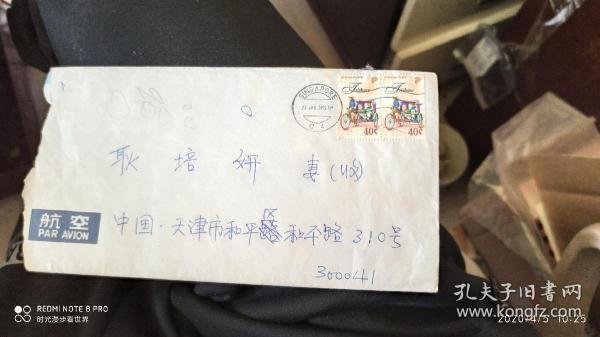 SINGAPORE
Trishaw
40¢
Trishaw
40¢
耿培妍 妻(收)
航空
PAR AVION
中国·天津市和平区和平路310号
300041
REDMI NOTE 8 PRO
时光漫步看世界
孔夫子旧书网
www.kongfz.com
2020/4/5 10:25